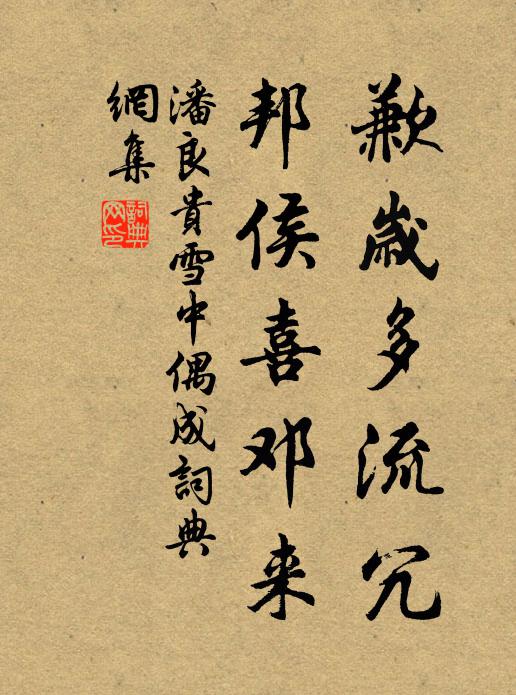 歉岁多流冗
邦侯喜邓来
潘良貴雪中偶成詞典
網集
詞典
网印